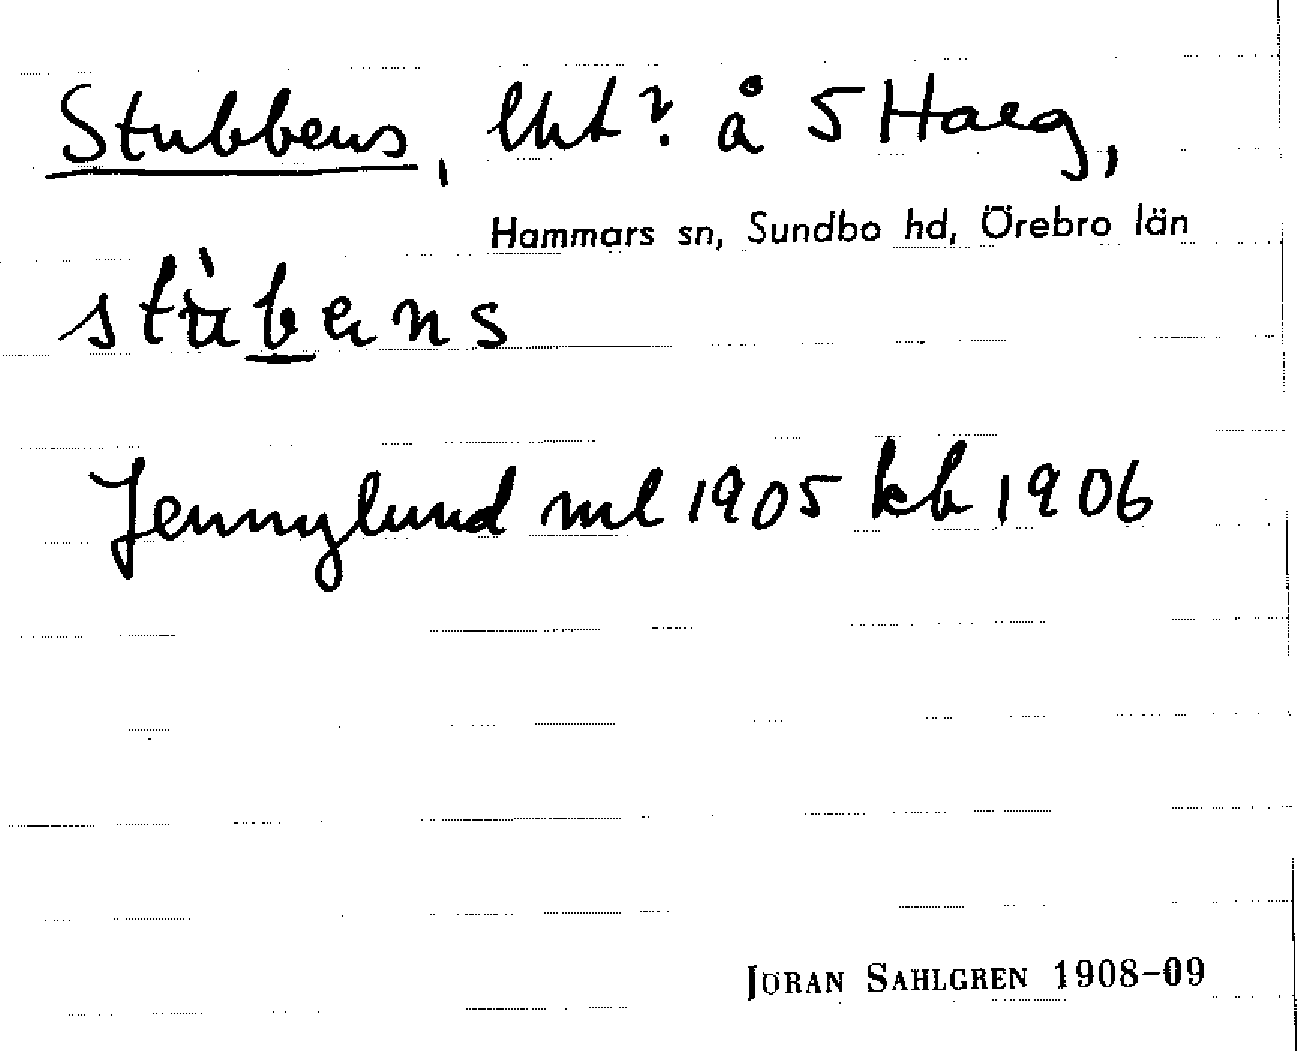 Stubbens, lht? å S Haeg,
Hammars sn, Sundbo hd, Örebro län
stùbens
Jennylund ml 1905 kb 1906
JÖRAN SAHLGREN 1908-09